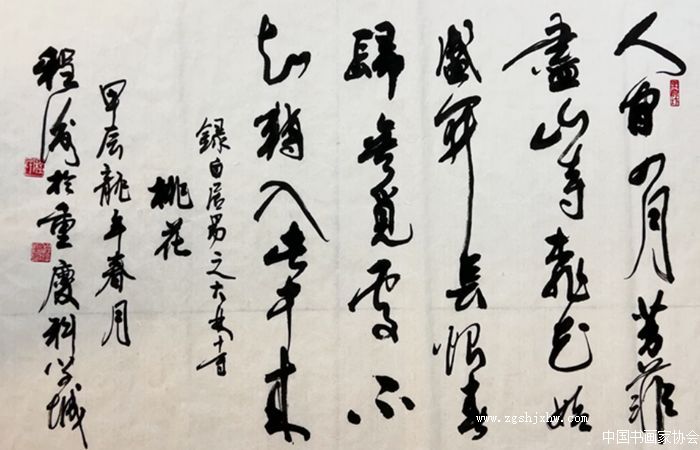 人間四月芳菲
盡山寺桃花始
盛開長恨春
歸無覓處不
知轉入此中來
錄白居易之大林寺
桃花
甲辰龍年春月
程於重慶科学城
www.zgshjxhw.com
中国书画家协会